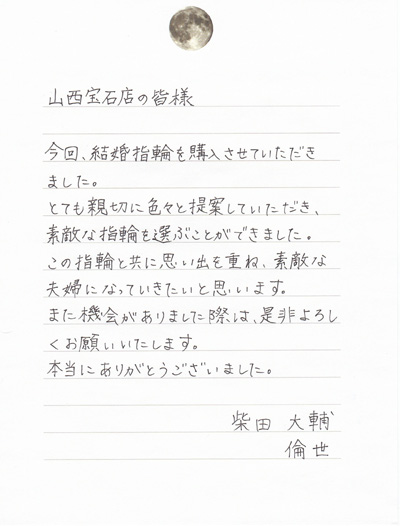 山西宝石店の皆様
今回、結婚指輪を購入させていただき
ました。
とても親切に色々と提案していただき、
素敵な指輪を選ぶことができました。
この指輪と共に思い出を重ね、素敵な
夫婦になっていきたいと思います。
また機会がありました際は、是非よろし
くお願いいたします。
本当にありがとうございました。
柴田 大輔
倫世